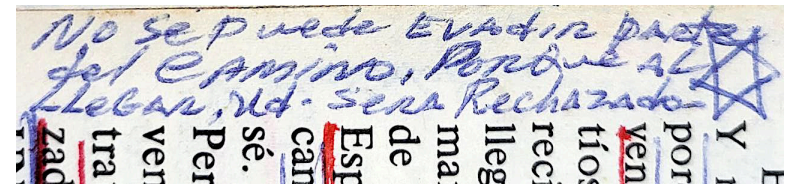 No se puede Evadir parte
del Camino, Porque Al
Llegar, Ud. Sera Rechazado
Y
por
ven
tíos
reci
lleg
mar
de
Esp
can
sé.
Per
ven
tra
zad